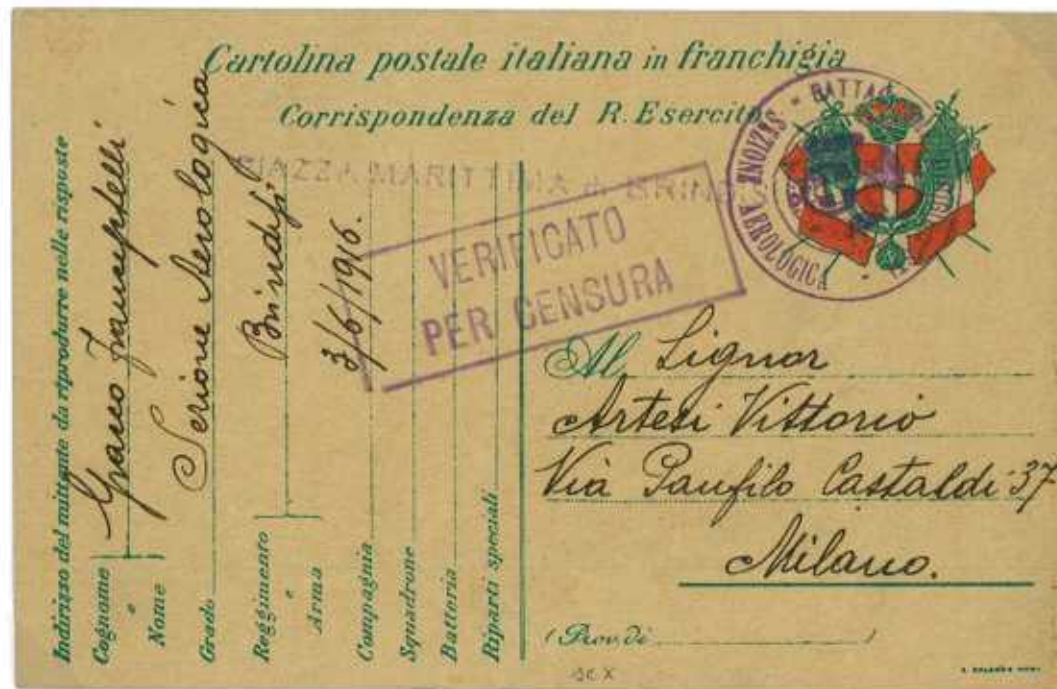 Cartolina postale italiana in franchigia
Corrispondenza del R. Esercito
PIAZZA MARITTIMA di BRIND
VERIFICATO
PER CENSURA
SEZIONE AEROLOGICA - BATTAG
Indirizzo del mittente da riprodurre nelle risposte
Cognome e Nome
Grado
Sezione Aerologica
Reggimento e Arma
Brindisi
3/6/1916.
Compagnia
Squadrone
Batteria
Riparti speciali
Al Signor
Artesi Vittorio
Via Panfilo Castaldi 37
Milano.
(Prov. di )